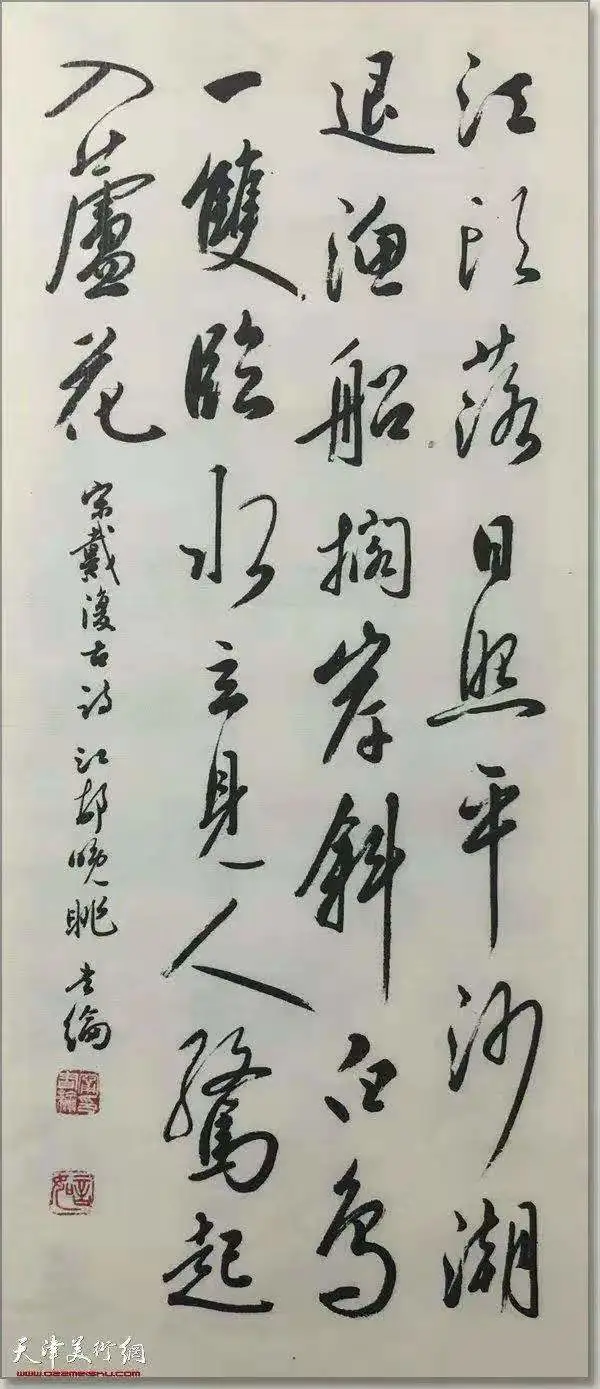 江頭落日照平沙潮
退漁船擱岸斜白鳥
一雙臨水立見人驚起
入蘆花
宋戴復古詩江邨晚眺 士綸
天津美術網
www.022meishu.com